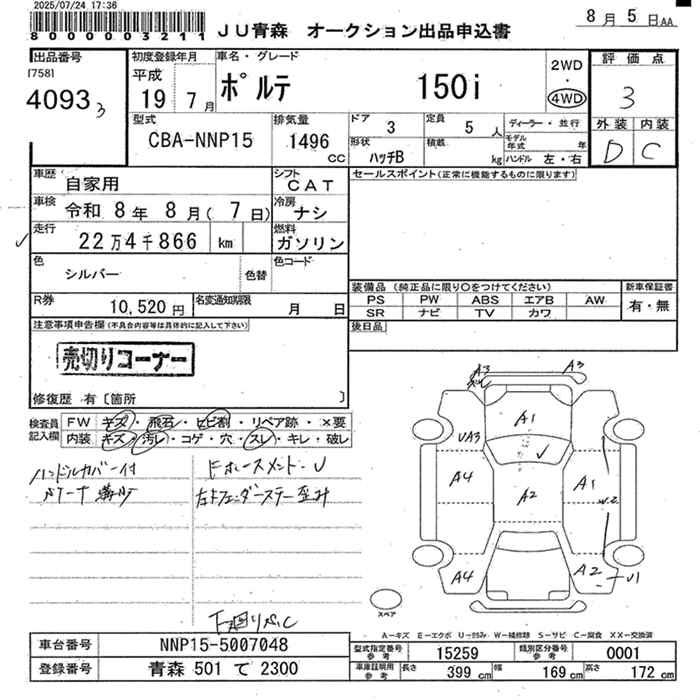 2025/07/24 17:36
8 0 0 0 0 0 3 2 1 1
JU青森 オークション出品申込書
8月 5日AA
出品番号
[758]
4093 3
初度登録年月
平成
19 7月
車名・グレード
ポルテ 150i
2WD
・
4WD
評価点
3
外装 内装
D C
型式
CBA-NNP15
排気量
1496
CC
ドア
3
定員
5 人
ディーラー・並行
モデル年式 年
形状
ハッチB
積載
kg
ハンドル 左・右
車歴
自家用
シフト
CAT
セールスポイント(正常に機能するものに限ります)
車検
令和 8年 8月( 7日)
冷房
ナシ
走行
22万4千866 km
燃料
ガソリン
色
シルバー
色替
色コード
装備品 (純正品に限り〇をつけてください)
PS PW ABS エアB AW
SR ナビ TV カワ
新車保証書
有・無
R券
10,520円
名変通知期限
月 日
後日品
注意事項申告欄(不具合内容等は具体的に記入して下さい)
売切りコーナー
修復歴 有〔箇所 〕
検査員記入欄
FW キズ・飛石・ヒビ割・リペア跡・×要
内装 キズ・汚レ・コゲ・穴・スレ・キレ・破レ
ハンドルカバー付
Fホースメント・U
下廻りサビ
A3
A3
A1
UA3
A4
A2
A1
W2
A4
A2
U1
スペア
A-キズ E-エクボ U-凹み W-補修跡 S-サビ C-腐食 XX-交換済
車台番号
NNP15-5007048
登録番号
青森 501 て 2300
型式指定番号
参考
15259
類別区分番号
参考
0001
車庫証明用
参考
長さ
399 cm
幅
169 cm
高さ
172 cm